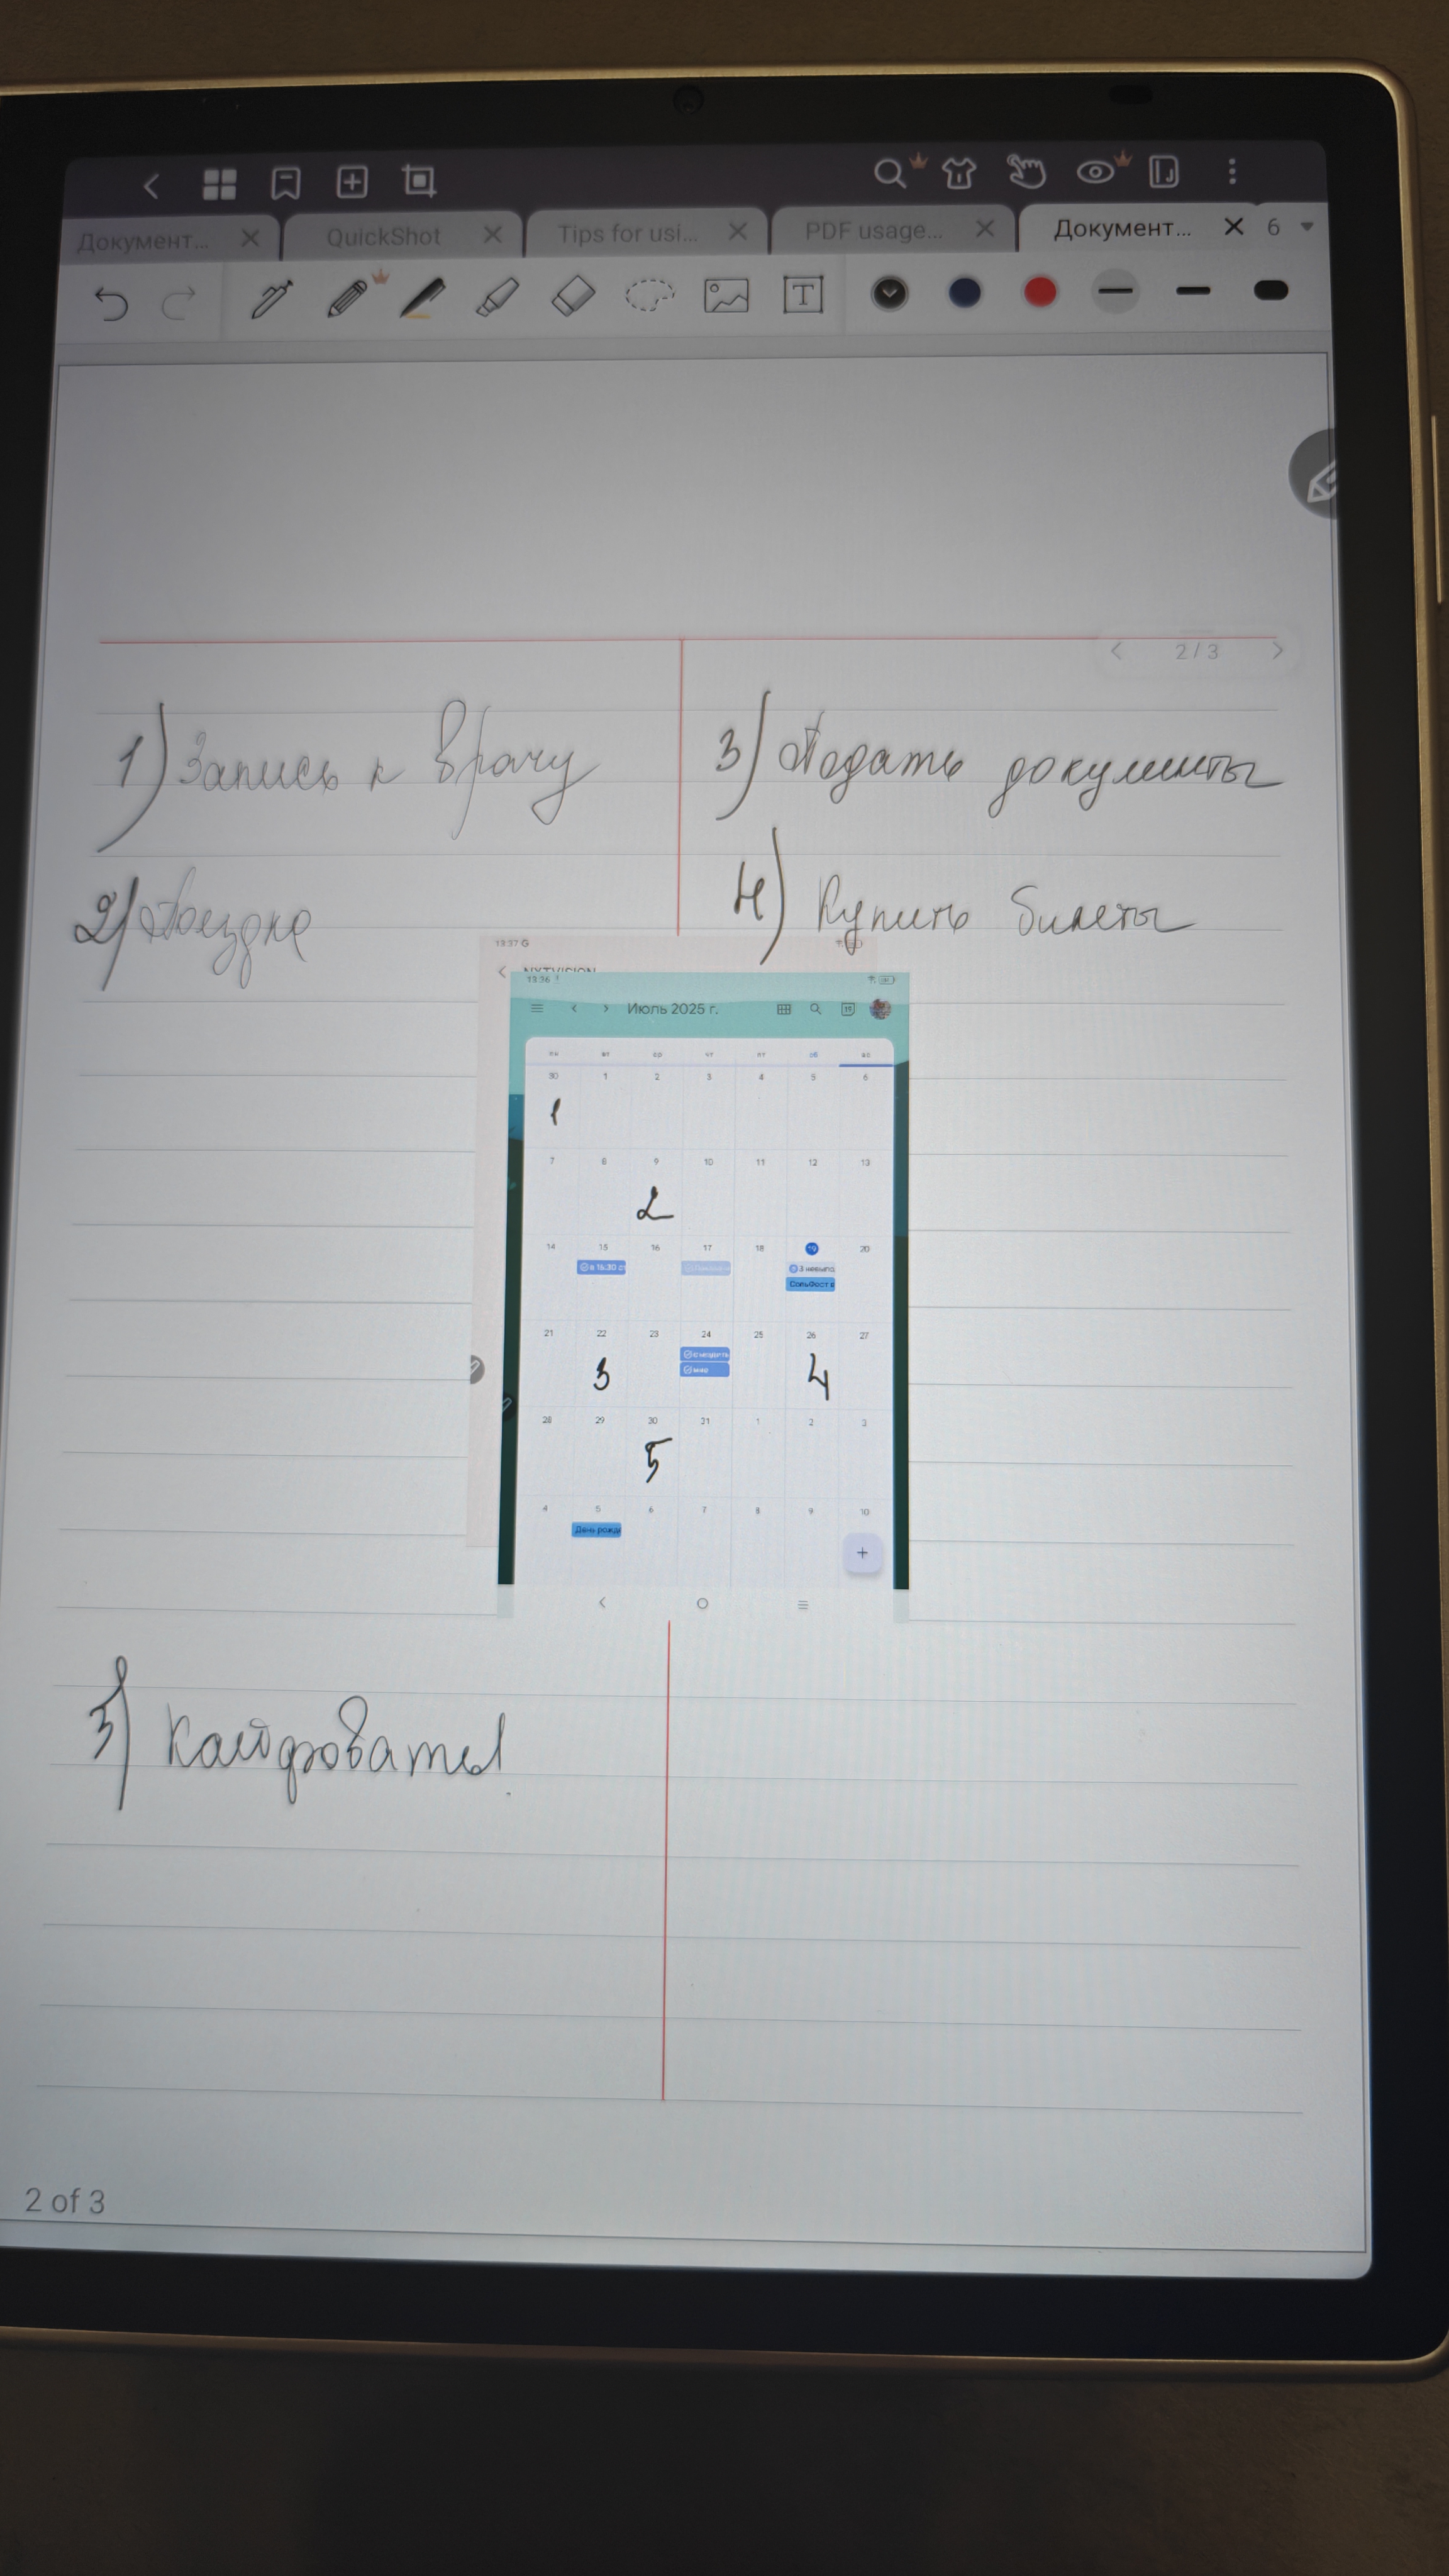 Документ...
QuickShot
Tips for usi...
PDF usage...
Документ...
6
T
2 / 3
1) Запись к врачу
3) Подать документы
2) Поездка
4) Купить билеты
13:37 G
NXTVISION
13:36
Июль 2025 г.
19
пн вт ср чт пт сб вс
30 1 2 3 4 5 6
1
7 8 9 10 11 12 13
2
14 15 16 17 18 19 20
в 16:30
3 невыпо
21 22 23 24 25 26 27
3
4
28 29 30 31 1 2 3
5
4 5 6 7 8 9 10
День рожд
+
2 of 3